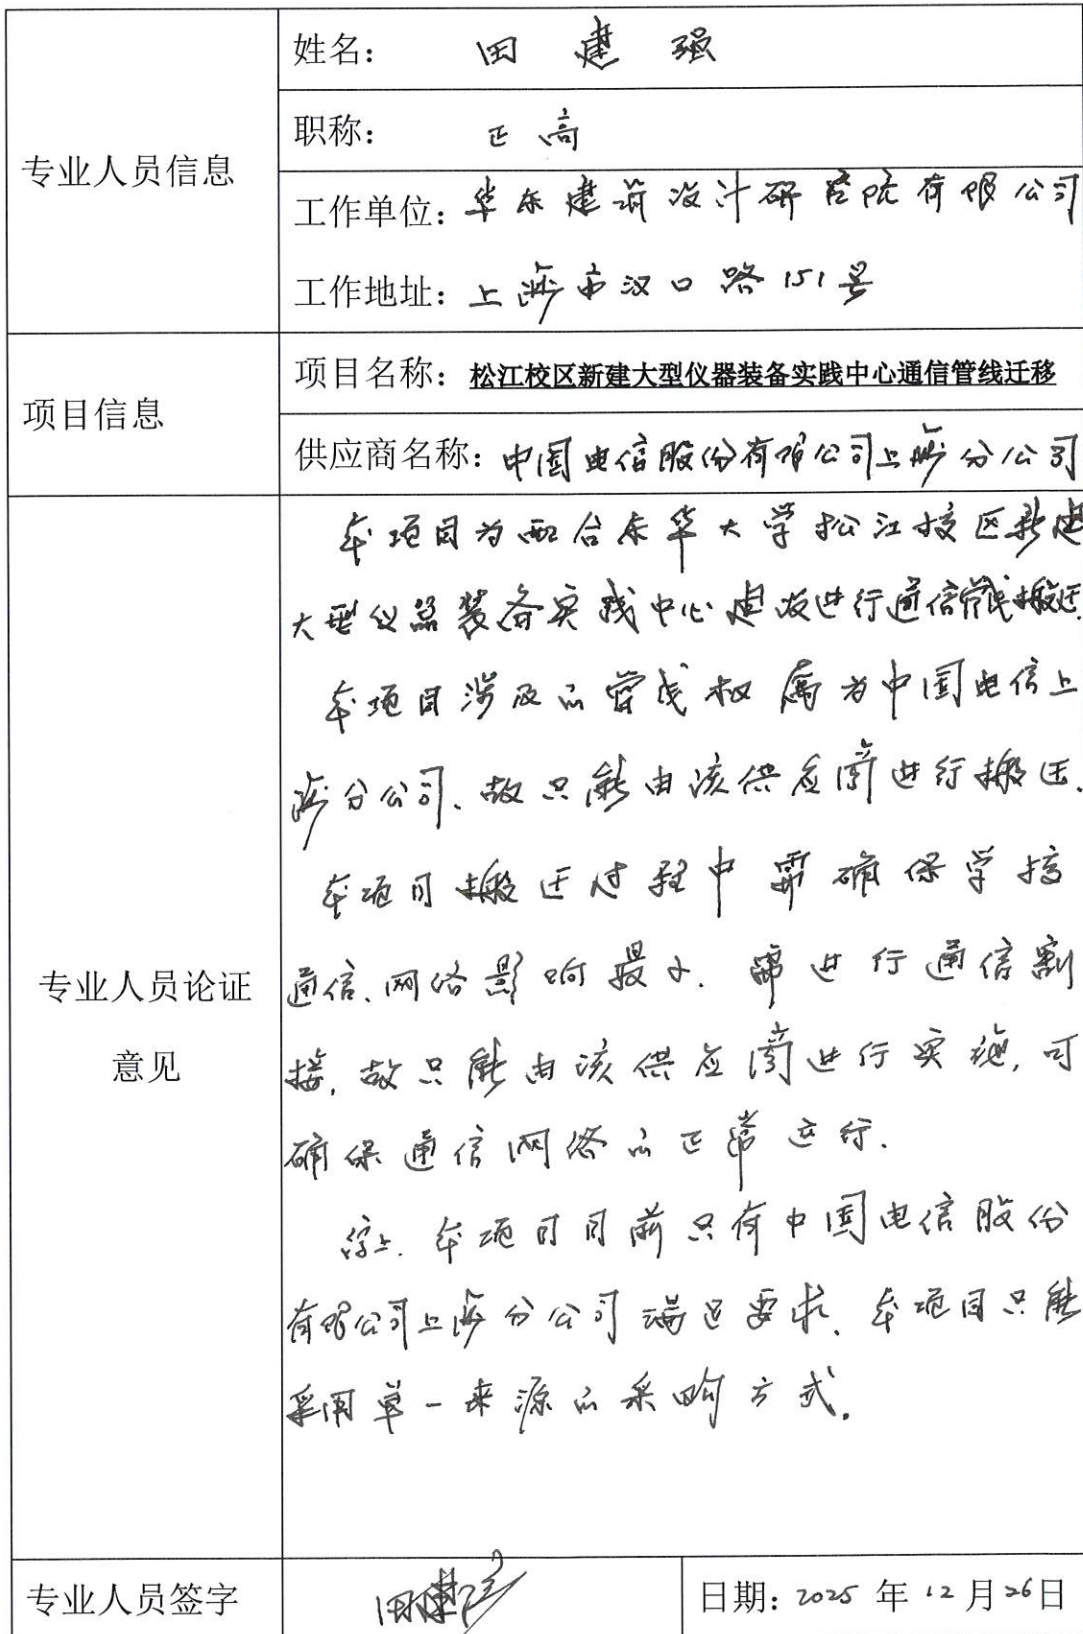 姓名： 田建强
职称： 正高
专业人员信息
工作单位：华东建筑设计研究院有限公司
工作地址：上海市汉口路151号
项目名称：松江校区新建大型仪器装备实践中心通信管线迁移
项目信息
供应商名称：中国电信股份有限公司上海分公司
本项目为配合东华大学松江校区新建
大型仪器装备实践中心建设进行通信管线搬迁.
本项目涉及的管线权属为中国电信上
海分公司、故只能由该供应商进行搬迁.
本项目搬迁过程中需确保学校
专业人员论证
意见
通信、网络影响最小. 需进行通信割
接, 故只能由该供应商进行实施, 可
确保通信网络的正常运行.
综上. 本项目目前只有中国电信股份
有限公司上海分公司满足要求、本项目只能
采用单一来源的采购方式.
专业人员签字 田建强 日期：2025年12月26日